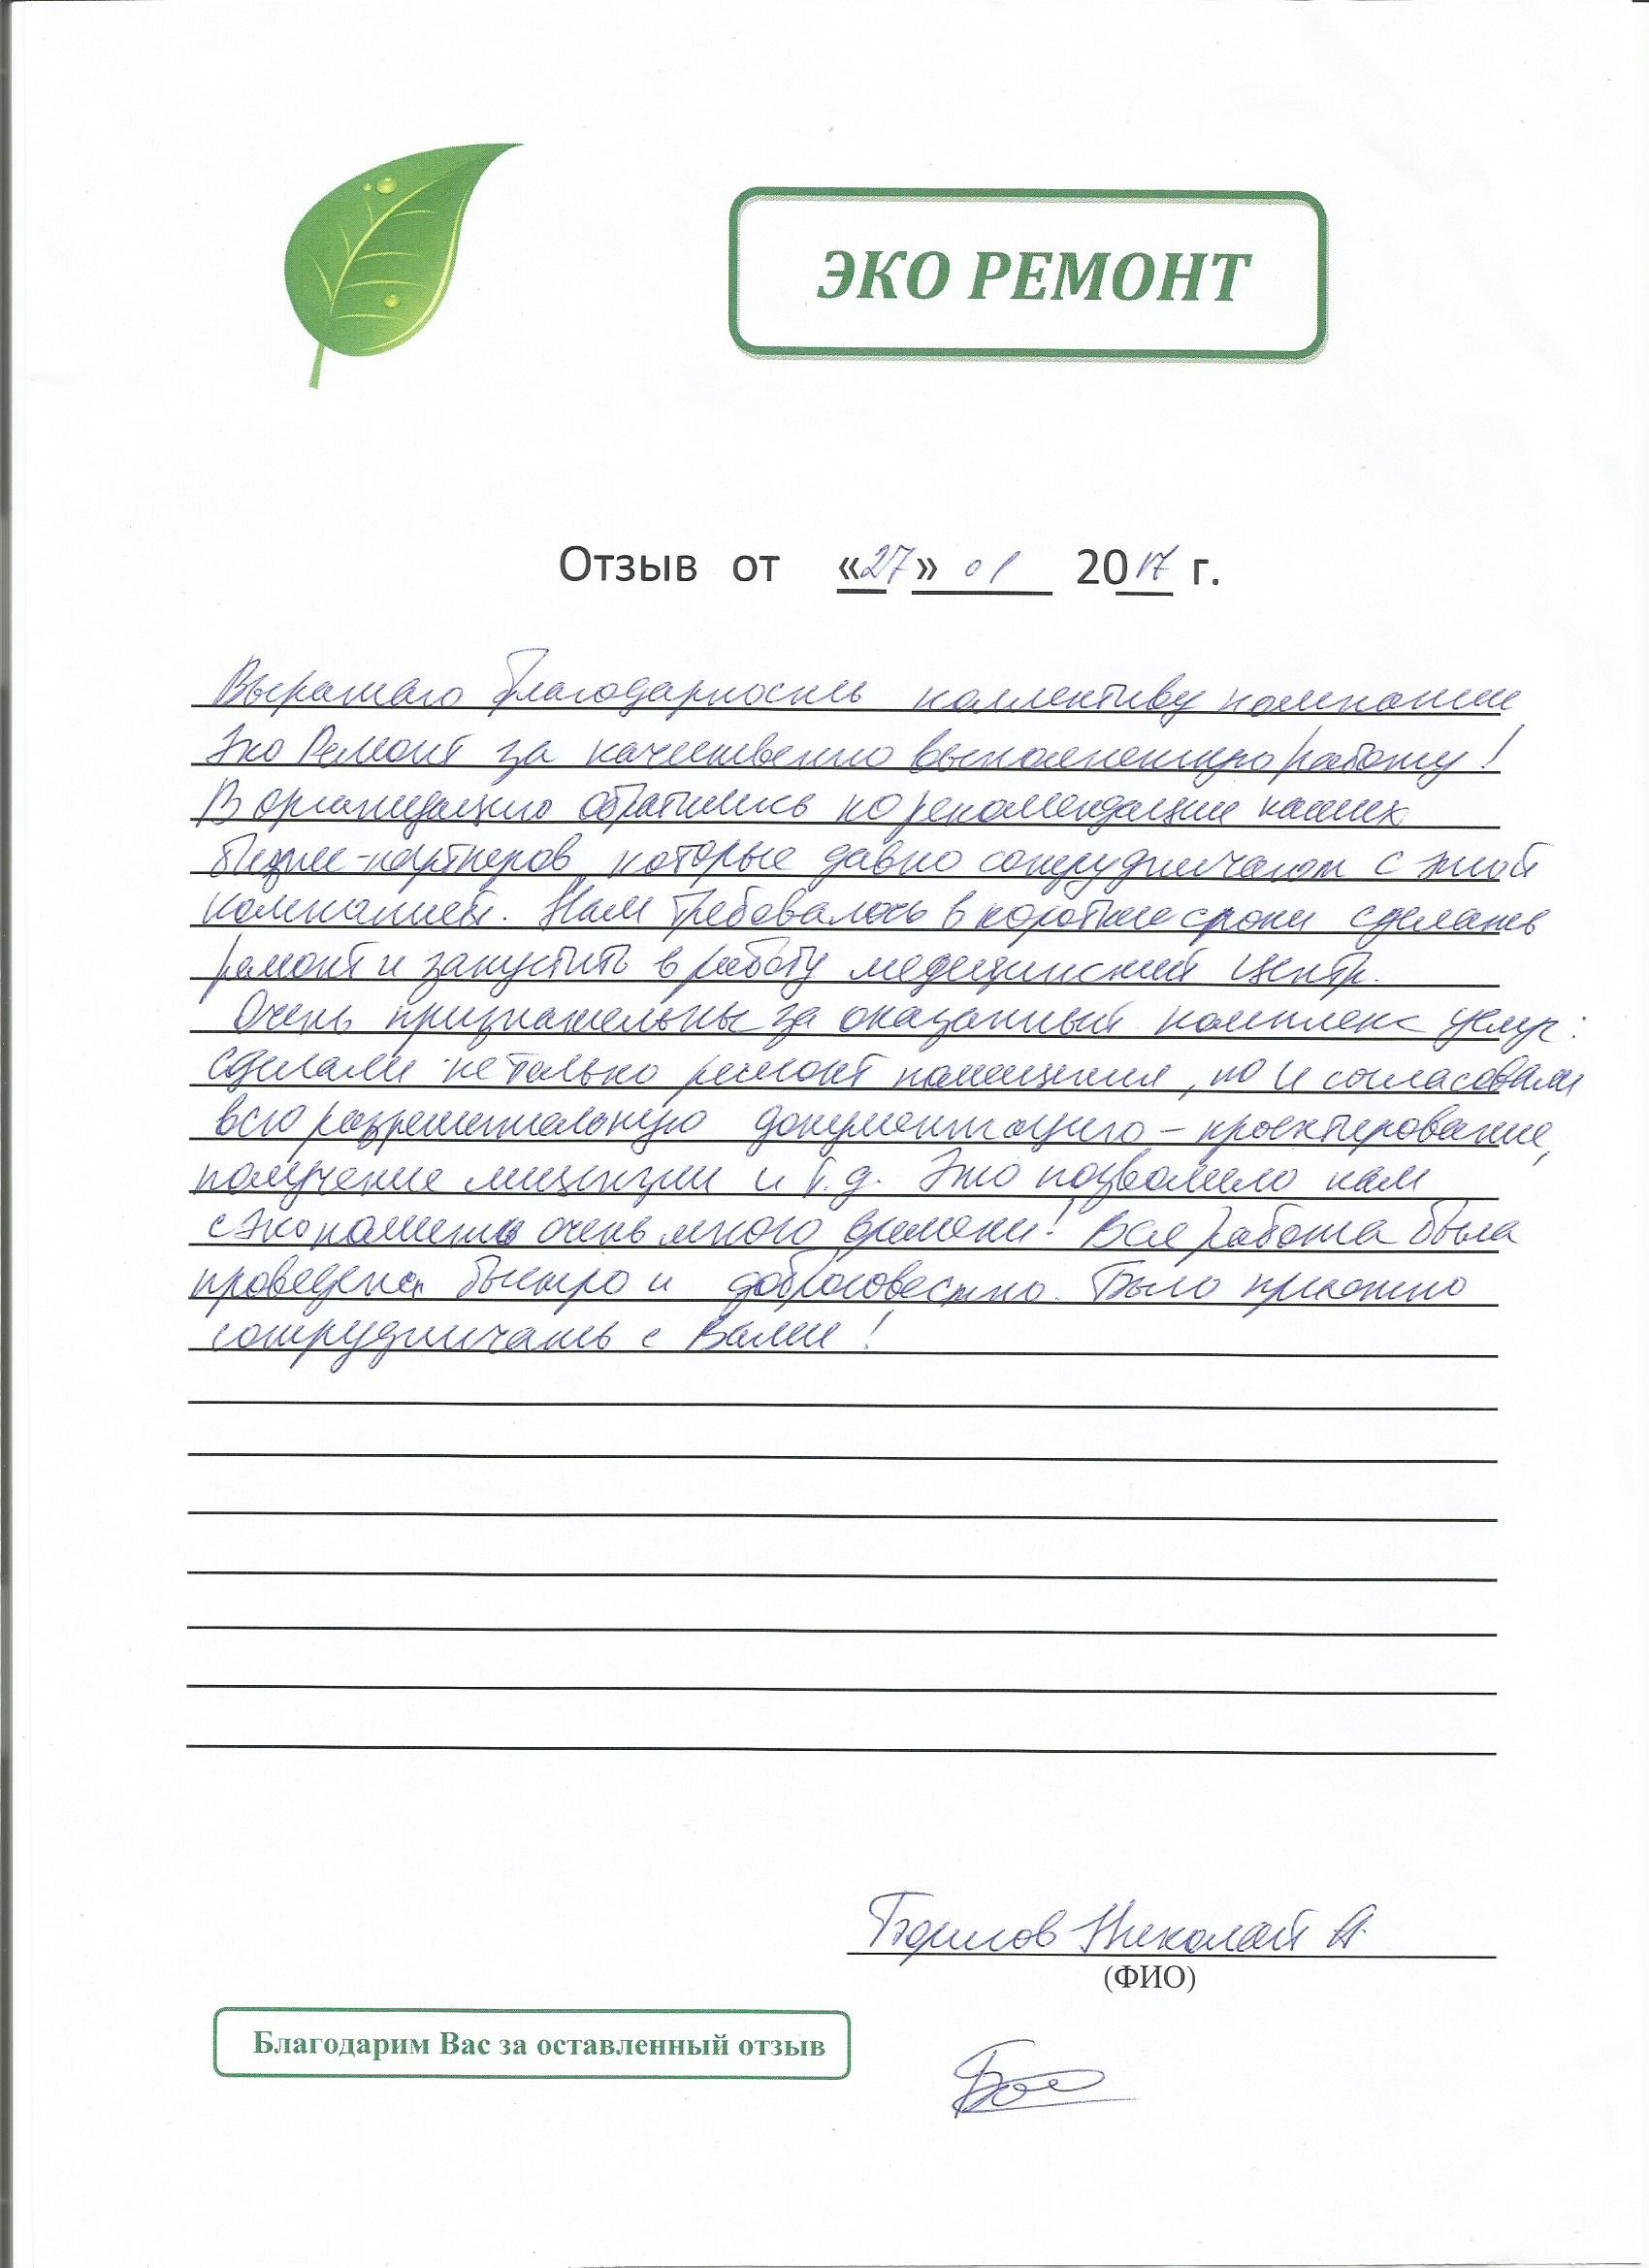 ЭКО РЕМОНТ
Отзыв от «27» 01 2017 г.
Выражаю благодарность коллективу компании
Эко Ремонт за качественно выполненную работу!
В организацию обратились по рекомендации наших
бизнес-партнеров, которые давно сотрудничают с этой
компанией. Нам требовалось в короткие сроки сделать
ремонт и запустить в работу медицинский центр.
Очень признательны за оказанный комплекс услуг:
сделали не только ремонт помещения, но и согласовали
всю разрешительную документацию - проектирование,
получение лицензии и т.д. Это позволило нам
сэкономить очень много времени! Вся работа была
проведена быстро и добросовестно. Было приятно
сотрудничать с Вами!
Николай А.
(ФИО)
Благодарим Вас за оставленный отзыв